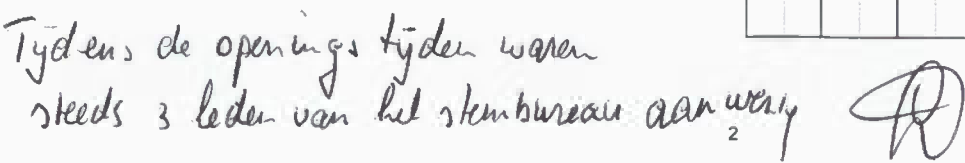 Tijdens de openings tijden waren
steeds 3 leden van het stembureau aanwezig
2